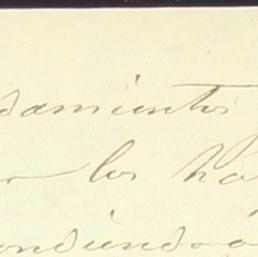 damientos
los ha
ondiendo á